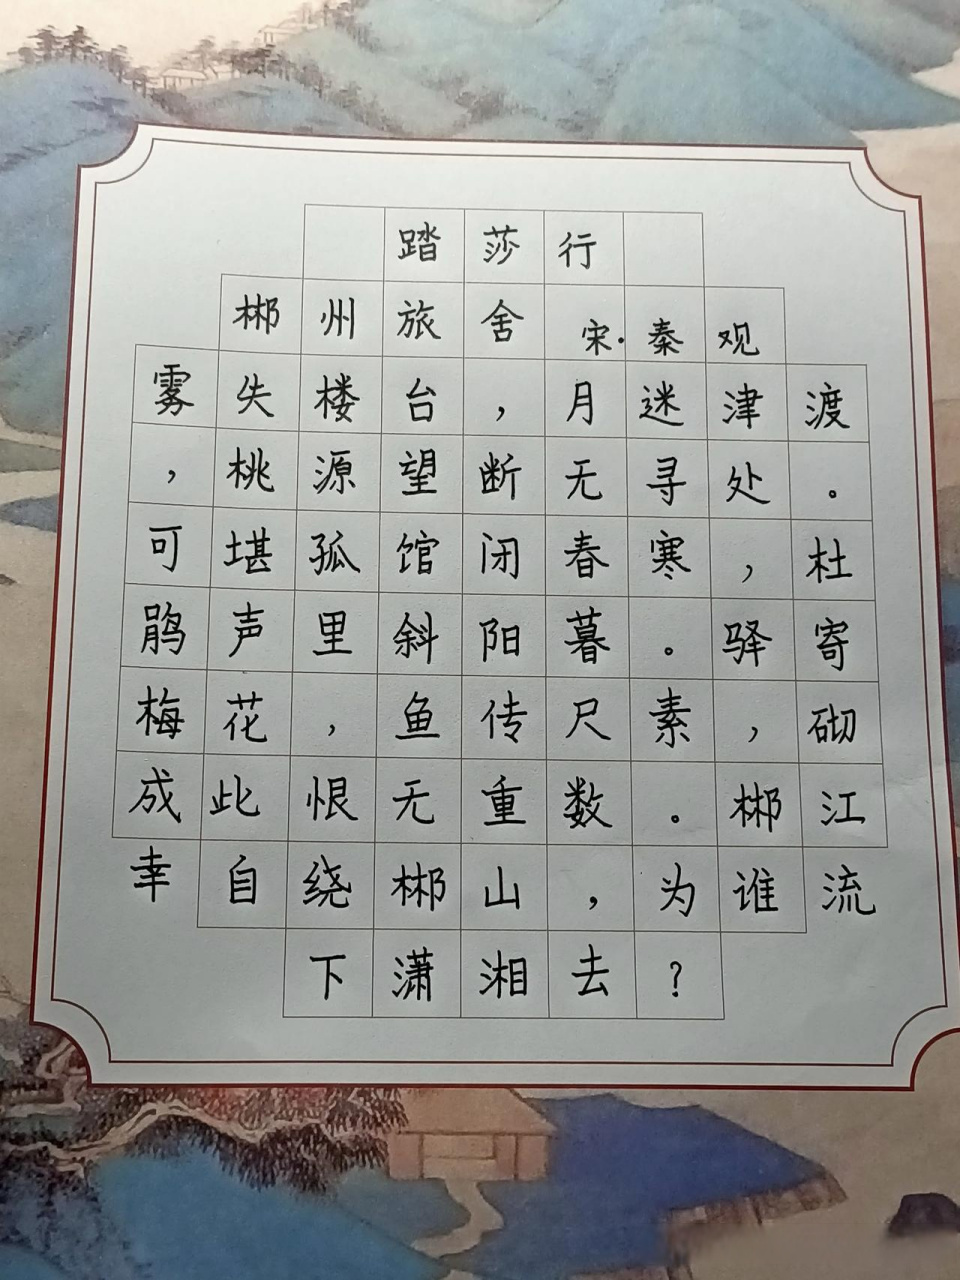 踏莎行
郴州旅舍 宋·秦观
雾失楼台，月迷津渡
，桃源望断无寻处。
可堪孤馆闭春寒，杜
鹃声里斜阳暮。驿寄
梅花，鱼传尺素，砌
成此恨无重数。郴江
幸自绕郴山，为谁流
下潇湘去？